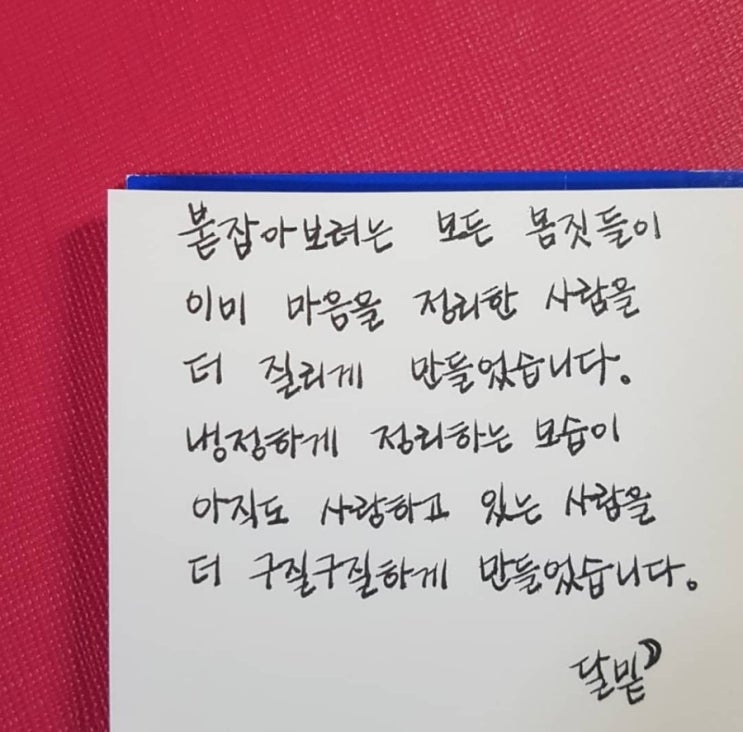 붙잡아보려는 모든 몸짓들이
이미 마음을 정리한 사람을
더 질리게 만들었습니다.
냉정하게 정리하는 모습이
아직도 사랑하고 있는 사람을
더 구질구질하게 만들었습니다.
달밑